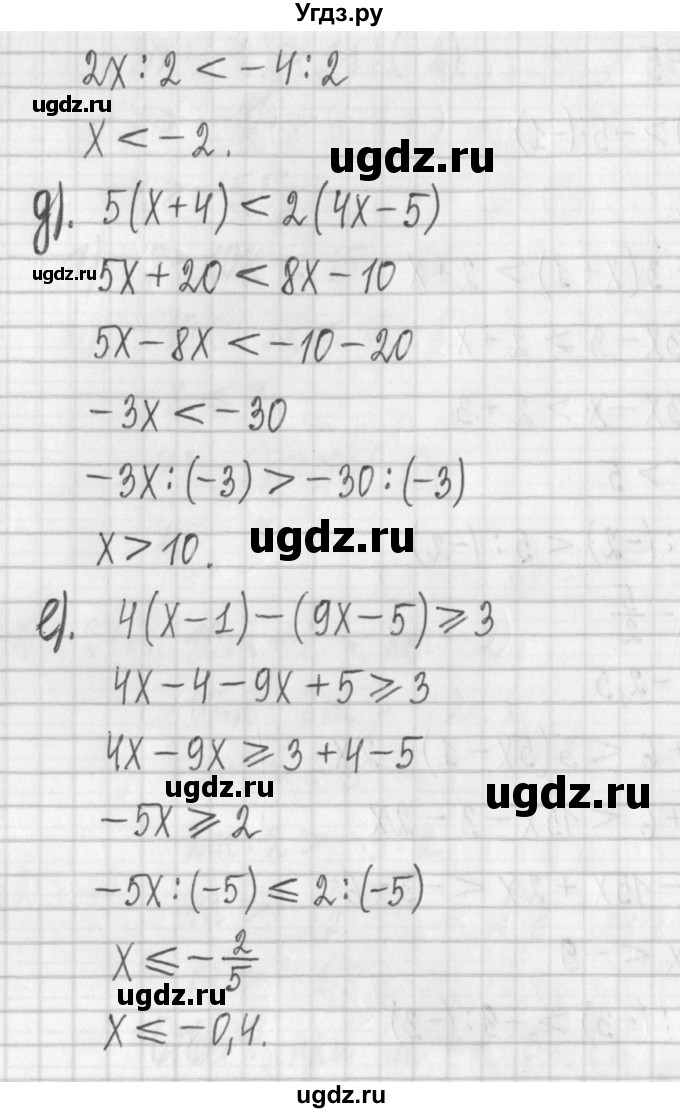 Угдз.ру
2x : 2 < -4 : 2
ugdz.ru
x < -2.
ugdz.ru
д). 5(x+4) < 2(4x-5)
ugdz.ru
5x + 20 < 8x - 10
5x - 8x < -10 - 20
-3x < -30
-3x : (-3) > -30 : (-3)
ugdz.ru
x > 10.
е). 4(x-1) - (9x-5) ⩾ 3
4x - 4 - 9x + 5 ⩾ 3
4x - 9x ⩾ 3 + 4 - 5
ugdz.ru
ugdz.ru
-5x ⩾ 2
-5x : (-5) ⩽ 2 : (-5)
x ⩽ -2/5
ugdz.ru
x ⩽ -0,4.
ugdz.ru